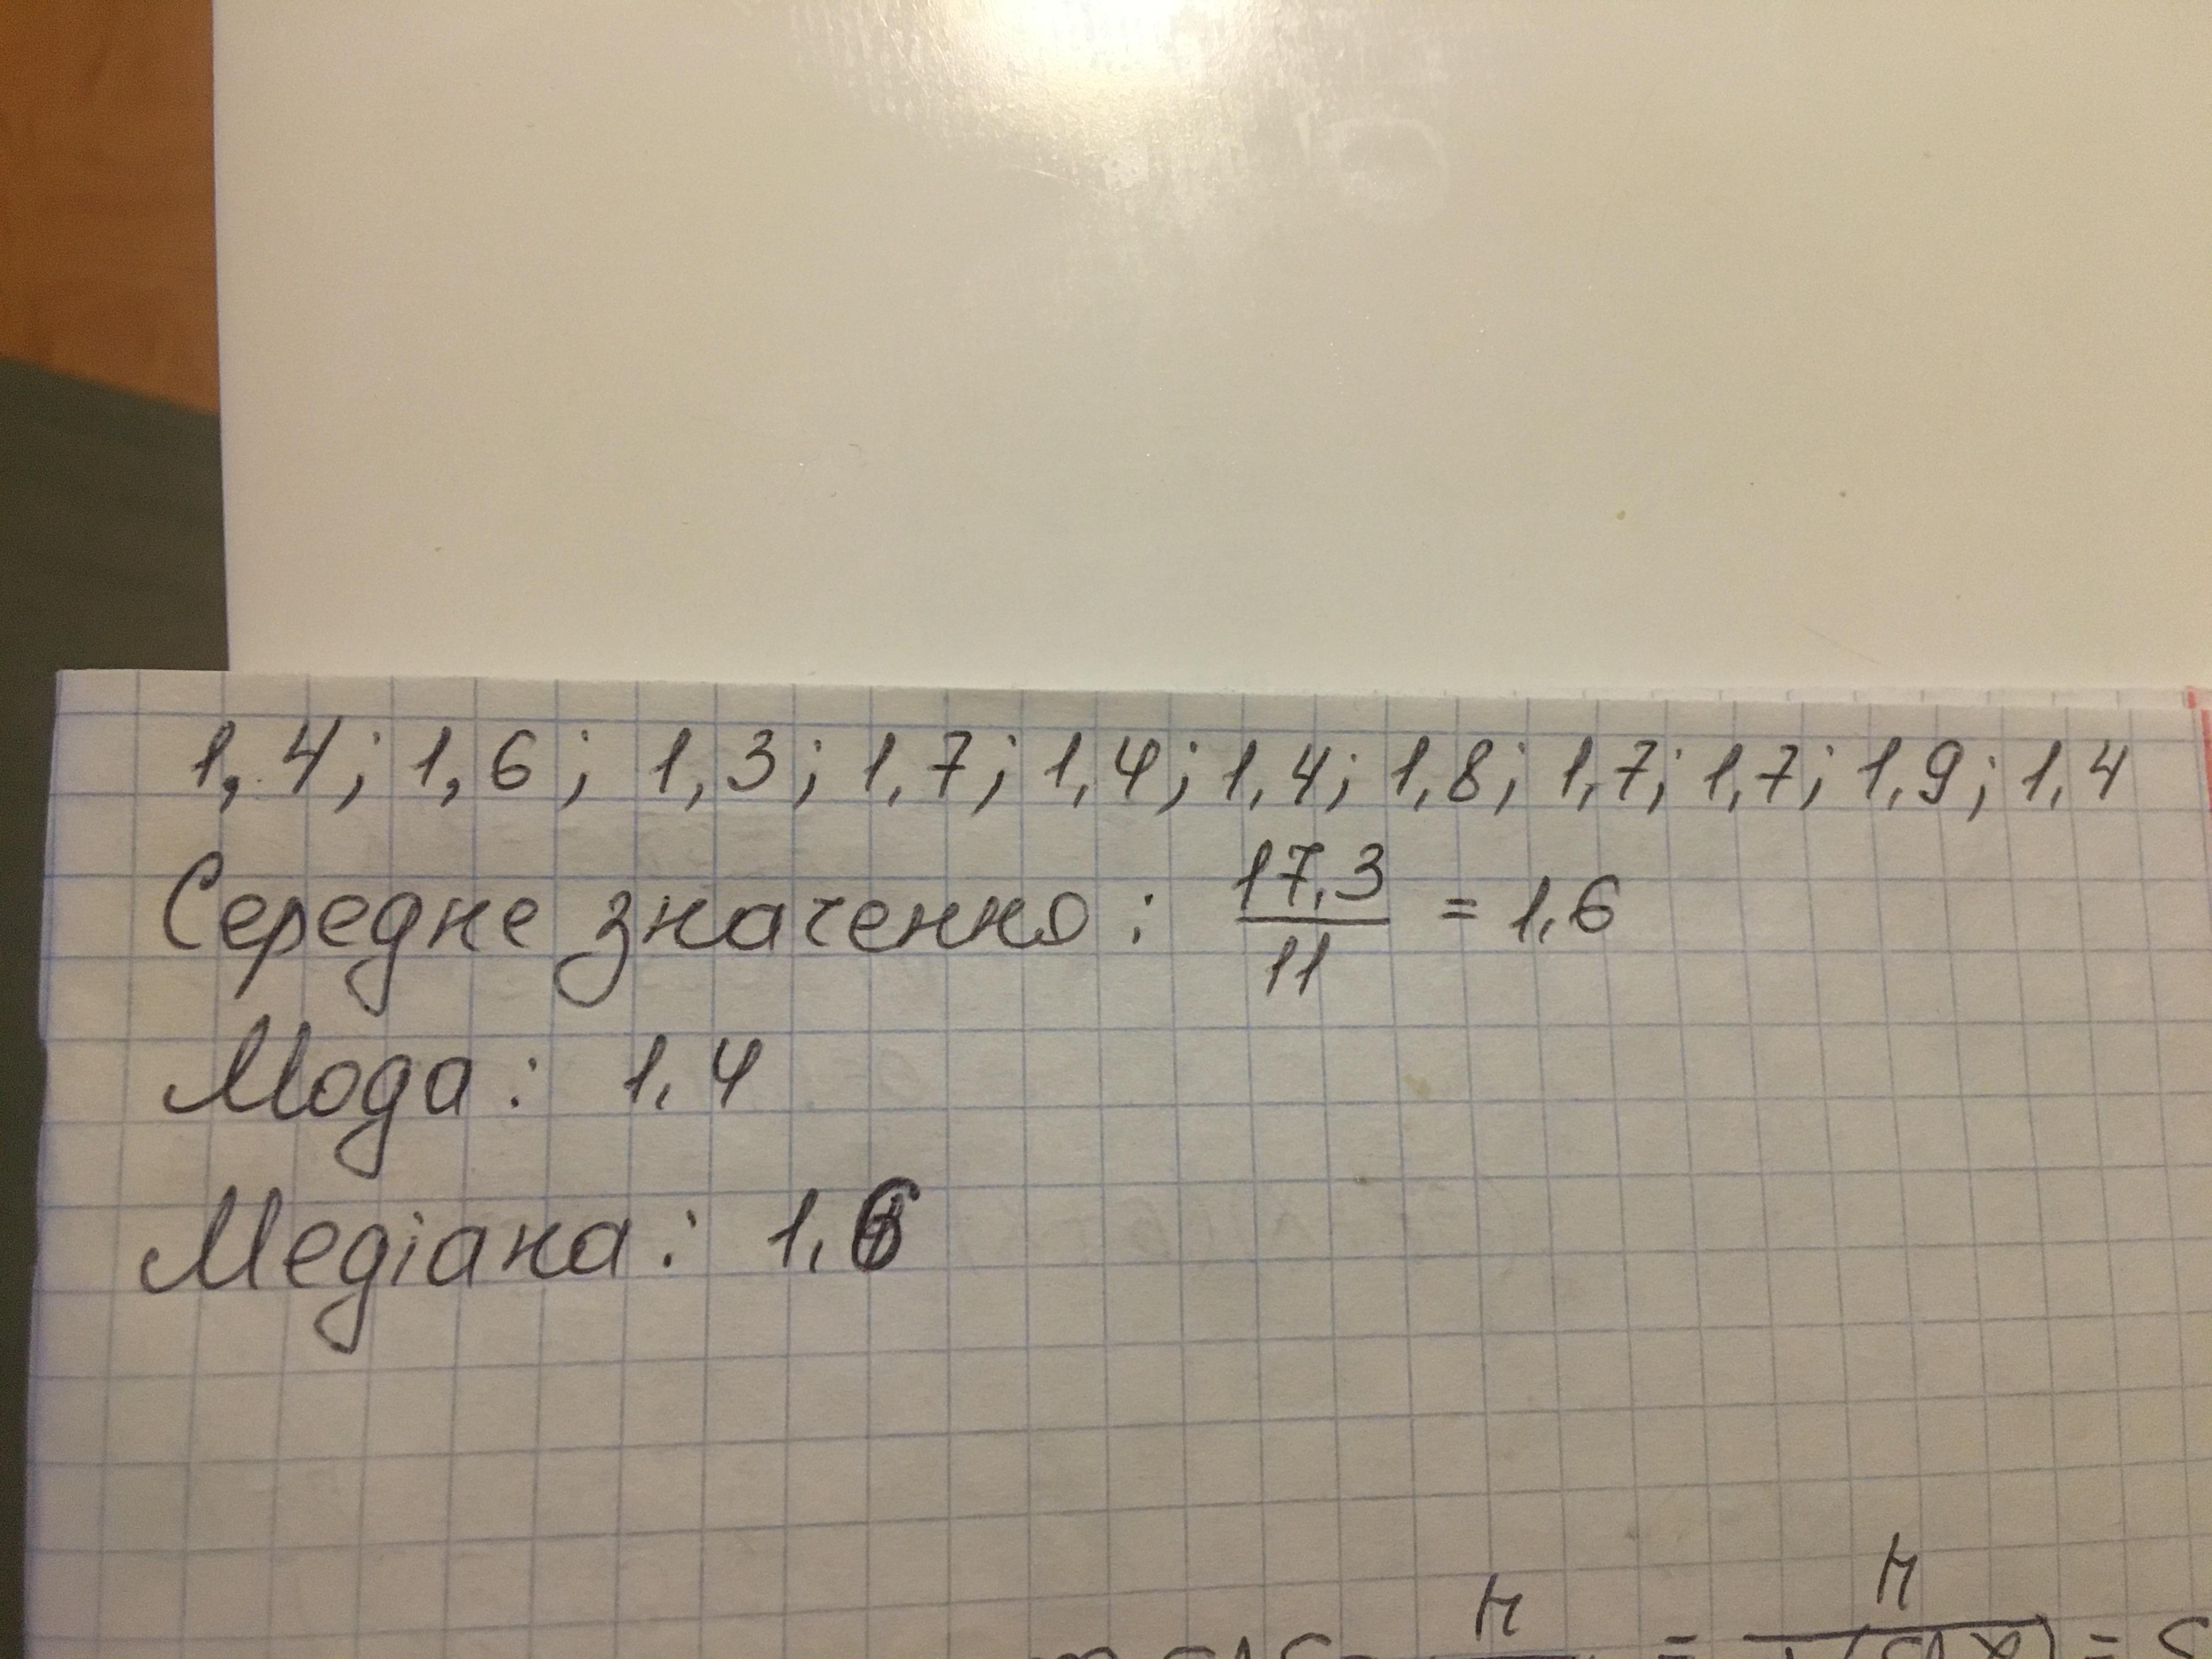 1,4; 1,6; 1,3; 1,7; 1,4; 1,4; 1,8; 1,7; 1,7; 1,9; 1,4
Середнє значення: 17,3/11 = 1,6
Мода: 1,4
Медіана: 1,6